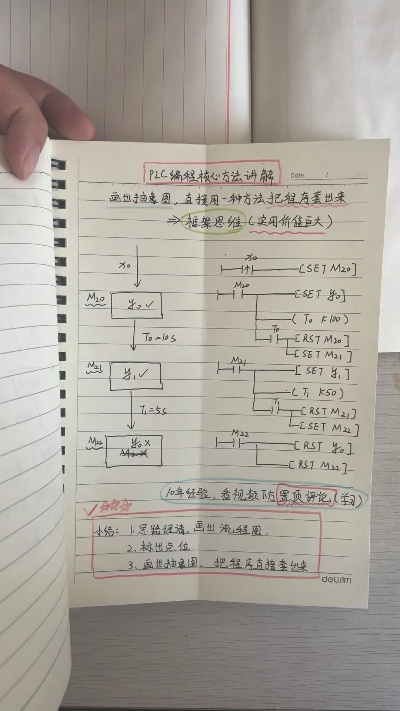 PLC编程核心方法讲解
Date. /
画出抽象图，直接用一种方法把程序套出来
⇒ 框架思维（实用价值巨大）
X0
X0 [SET M20]
M20 Y0 ✓
M20 [SET Y0]
(T0 K100)
T0=10s
T0 [RST M20]
[SET M21]
M21 Y1 ✓
M21 [SET Y1]
(T1 K50)
T1=5s
T1 [RST M21]
[SET M22]
M22 Y0 ×
M22 [RST Y0]
[RST M22]
10年经验，看视频下方置顶评论（学习）
小结：1. 思路理清，画出流程图，
2. 标出点位
3. 画出抽象图，把程序直接套出来
deli